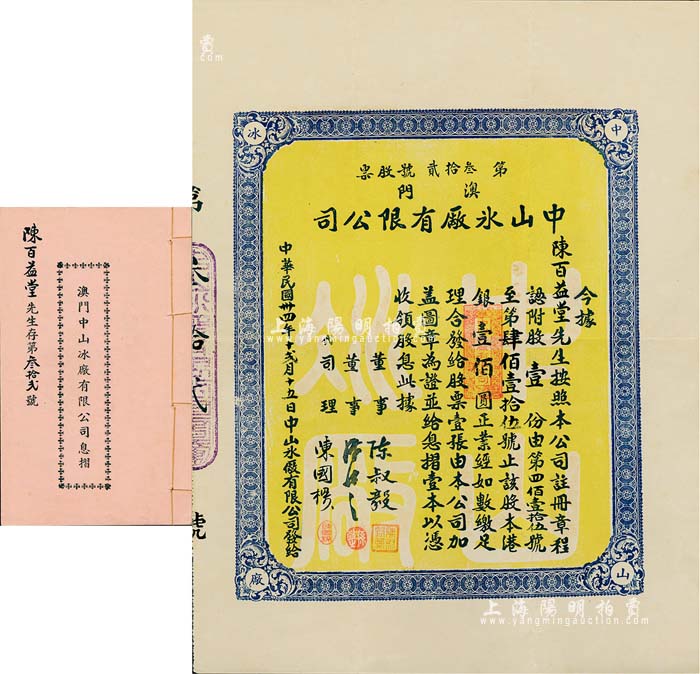 陳百益堂先生存第叁拾弍號
澳門中山冰廠有限公司息摺
第
拾
號
中
山
冰
廠
第叁拾貳號股票
澳門
中山氷廠有限公司
今據
陳百益堂先生按照本公司註冊章程
認附股壹份由第四佰壹拾伍號
至第肆佰壹拾伍號止該股本港
銀壹佰圓正業經如數繳足
理合發給股票壹張由本公司加
蓋圖章為證並給息摺壹本以憑
收領股息此據
董事 陈叔毅
董事
司理 陳國樑
中華民國卅四年弍月十五日中山氷廠有限公司發給
上海陽明拍賣
www.yangmingauction.com
上海陽明拍賣
www.yangmingauction.com